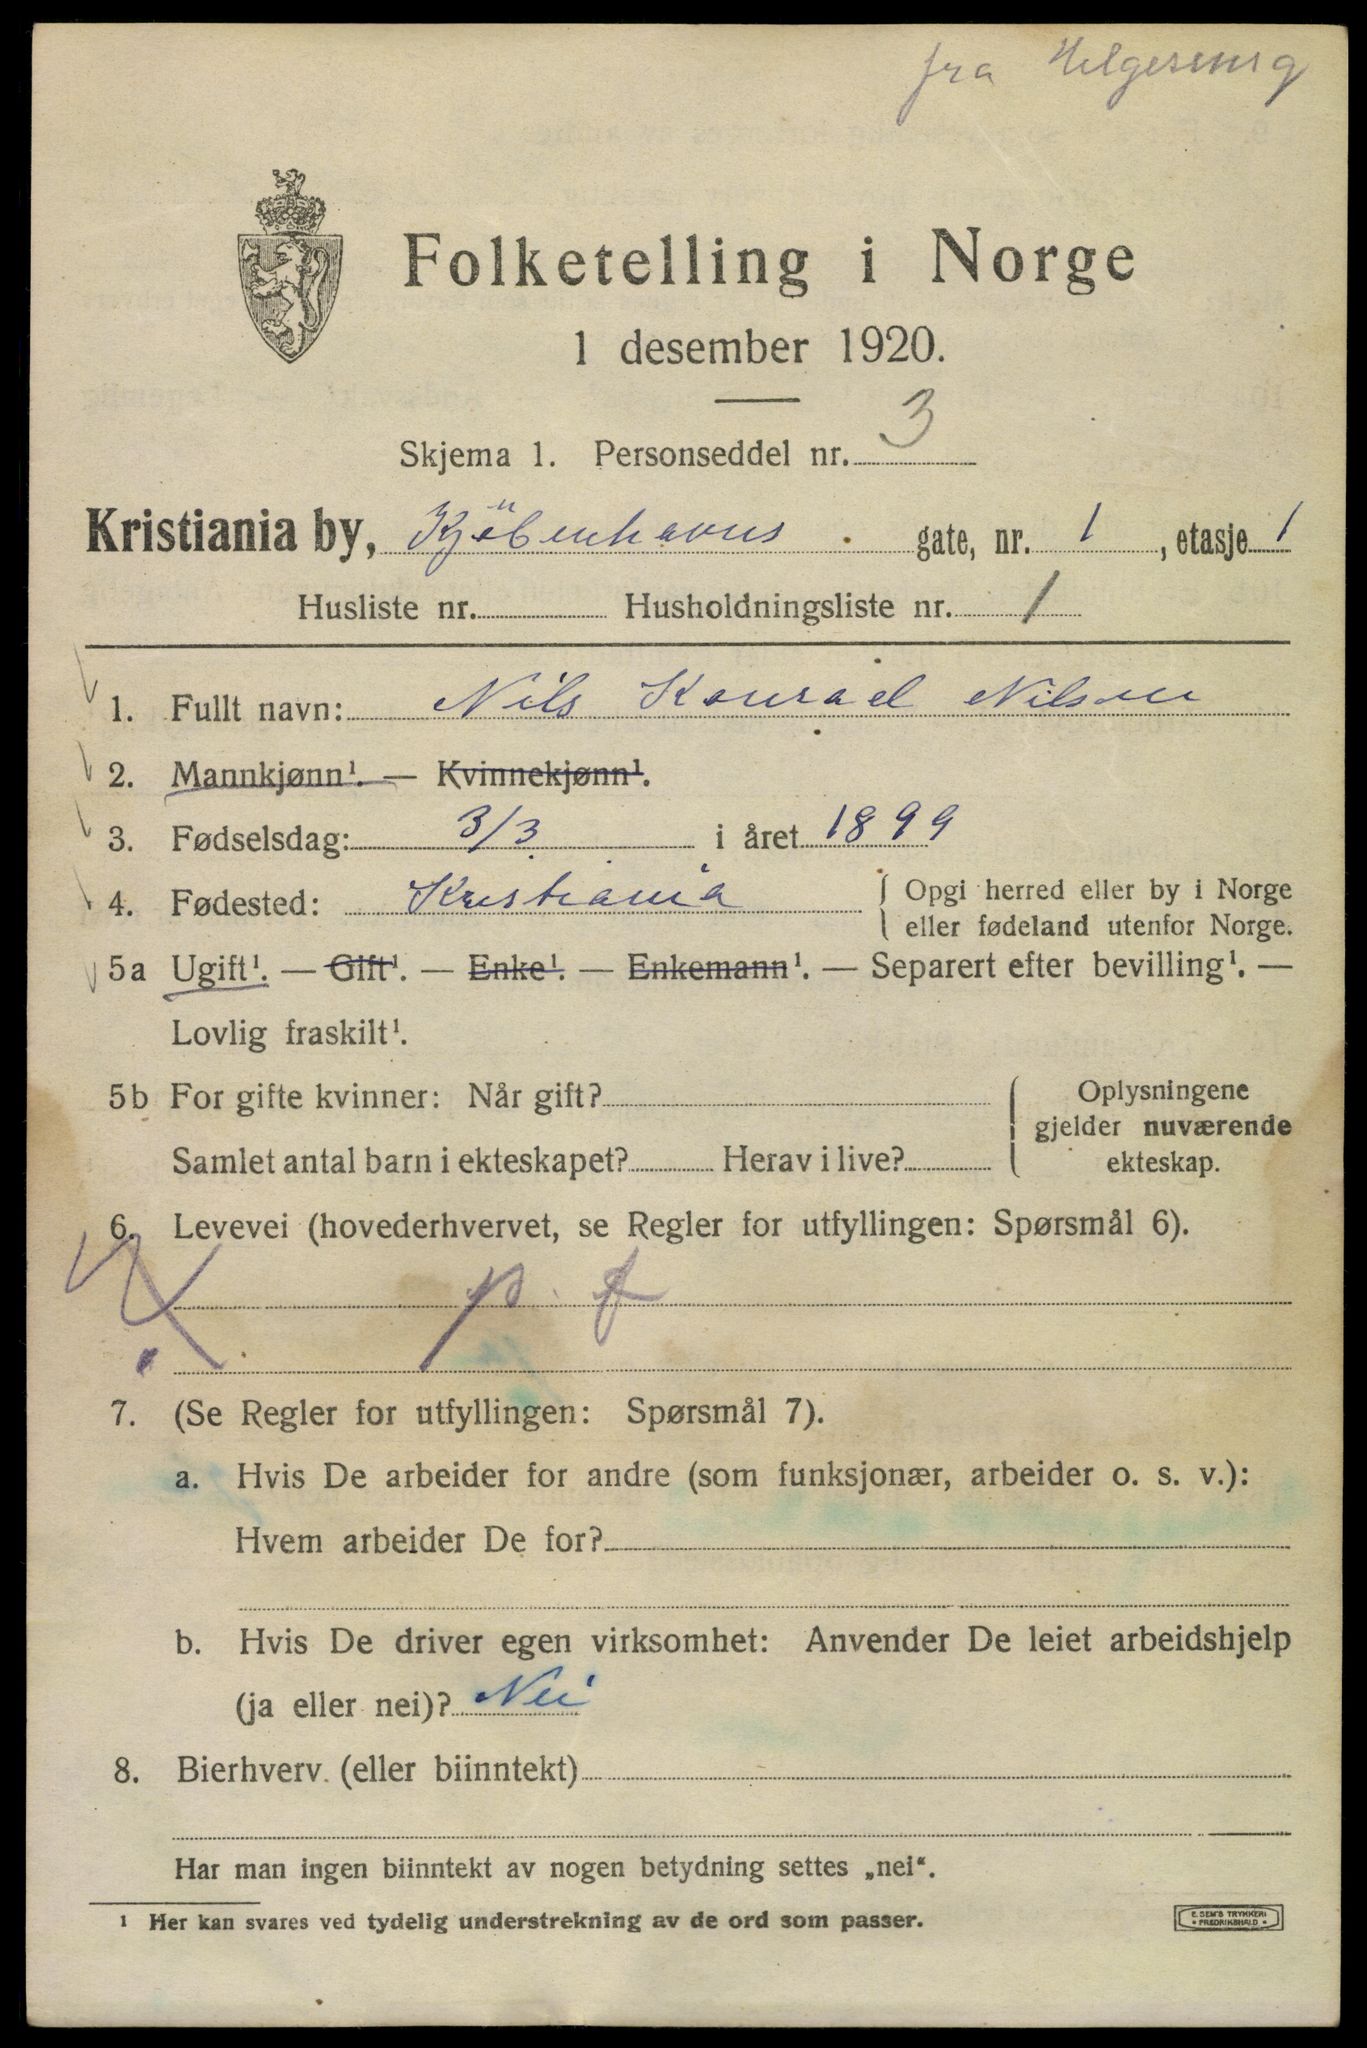 fra Helgesensg
Folketelling i Norge
1 desember 1920.
Skjema 1. Personseddel nr. 3
Kristiania by, Kjöbenhavns gate, nr. 1, etasje 1
Husliste nr. Husholdningsliste nr. 1
1. Fullt navn: Nils Konrad Nilsen
2. Mannkjønn¹. — Kvinnekjønn¹.
3. Fødselsdag: 3/3 i året 1899
4. Fødested: Kristiania { Opgi herred eller by i Norge
eller fødeland utenfor Norge.
5a Ugift¹. — Gift¹. — Enke¹. — Enkemann¹. — Separert efter bevilling¹. —
Lovlig fraskilt¹.
5b For gifte kvinner: Når gift?
Samlet antal barn i ekteskapet? Herav i live?
Oplysningene
gjelder nuværende
ekteskap.
6. Levevei (hovederhvervet, se Regler for utfyllingen: Spørsmål 6).
p. f
7. (Se Regler for utfyllingen: Spørsmål 7).
a. Hvis De arbeider for andre (som funksjonær, arbeider o. s. v.):
Hvem arbeider De for?
b. Hvis De driver egen virksomhet: Anvender De leiet arbeidshjelp
(ja eller nei)? Nei
8. Bierhverv (eller biinntekt)
Har man ingen biinntekt av nogen betydning settes „nei“.
¹ Her kan svares ved tydelig understrekning av de ord som passer.
E. SEM'S TRYKKERI
• FREDRIKSHALD •